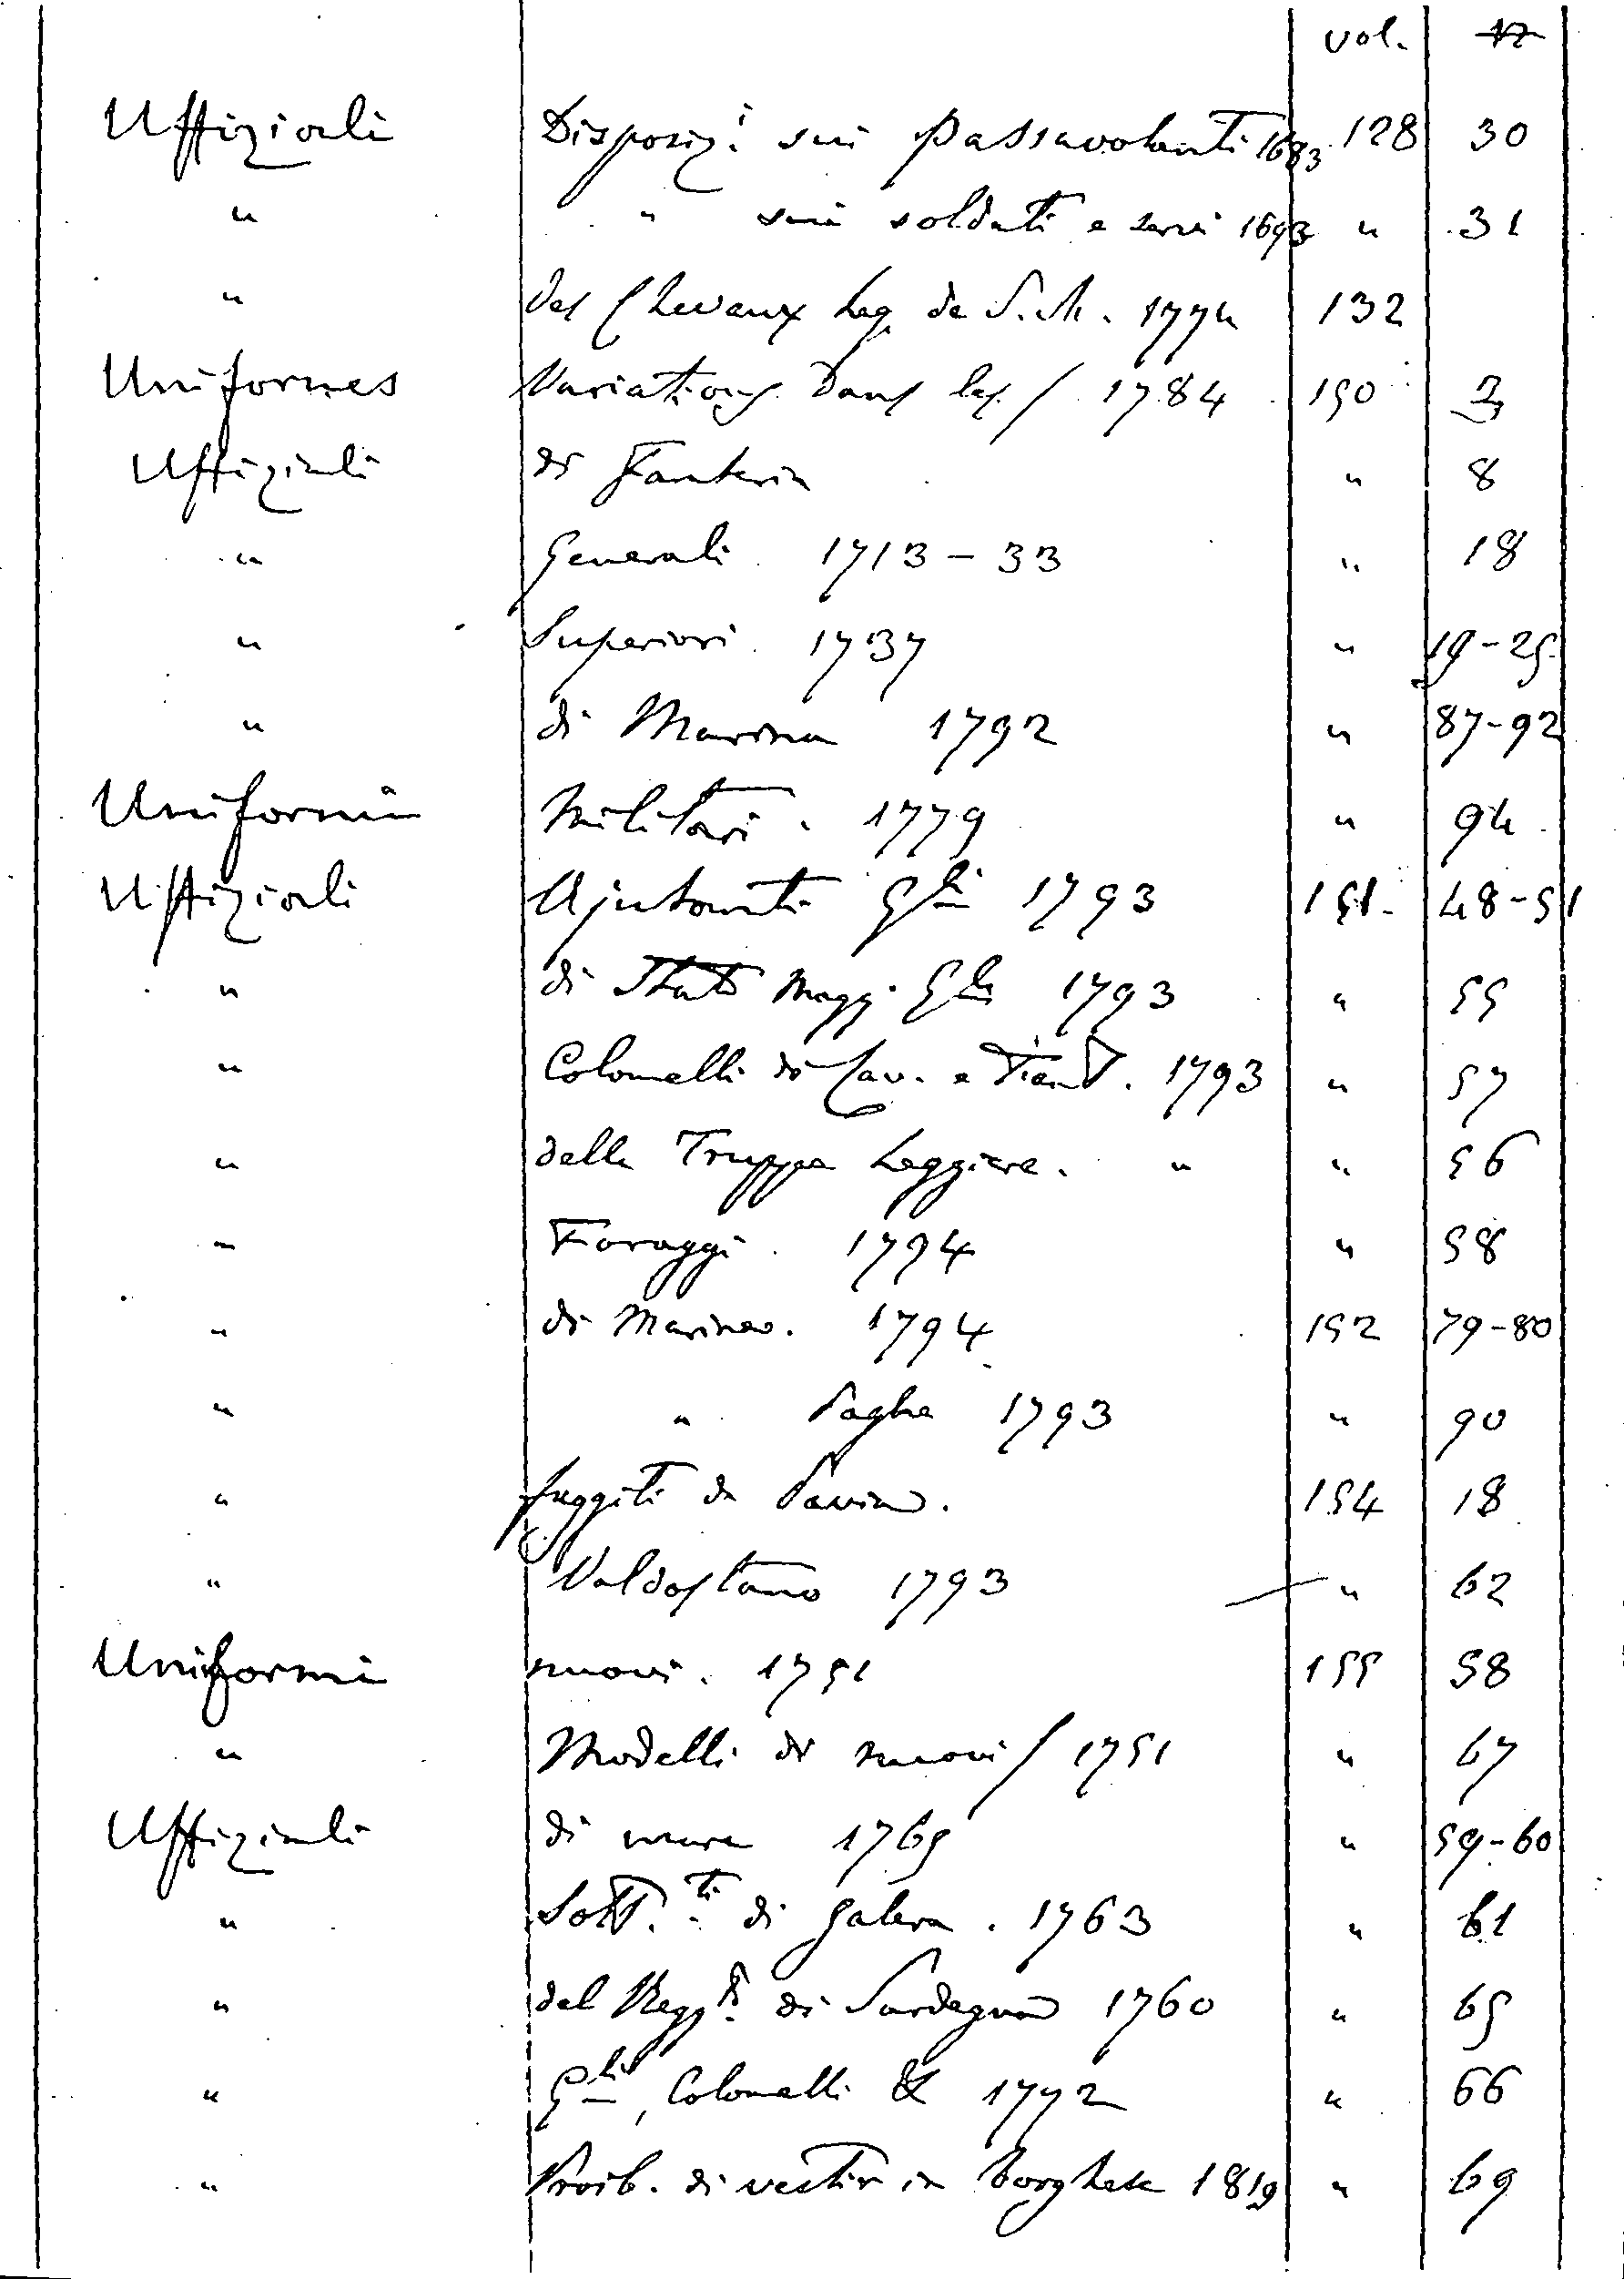 vol. N
Uffiziali Disposiz.i sui passavolanti 1683 128 30
" " sui soldati e servi 1693 " 31
" des Chevaux Leg. de S. M. 1774 132
Uniformes Variations dans les / 1784 150 3
Uffiziali di Fanteria " 8
" Generali 1713 - 33 " 18
" Superiori 1737 " 19-25
" di Marina 1792 " 87-92
Uniformi Militari. 1779 " 94
Uffiziali Ajutanti Gli 1793 151 48-51
" di Stato Magg. Gle 1793 " 55
" Colonelli di Cav. e Fant. 1793 " 57
" delle Truppe Leggiere. " " 56
" Foraggi. 1794 " 58
" di Marina. 1794 152 79-80
" " Paghe 1793 " 90
" fuggiti da Pavia. 154 18
" Valdostano 1793 " 62
Uniformi nuovi. 1751 155 58
" Modelli di nuovi / 1751 " 67
Uffiziali di mare 1765 " 59-60
" Sott.ti di Galera. 1763 " 61
" del Regg.to di Sardegna 1760 " 65
" Gli, Colonelli & 1772 " 66
" Proib. di vestir in borghese 1819 " 69